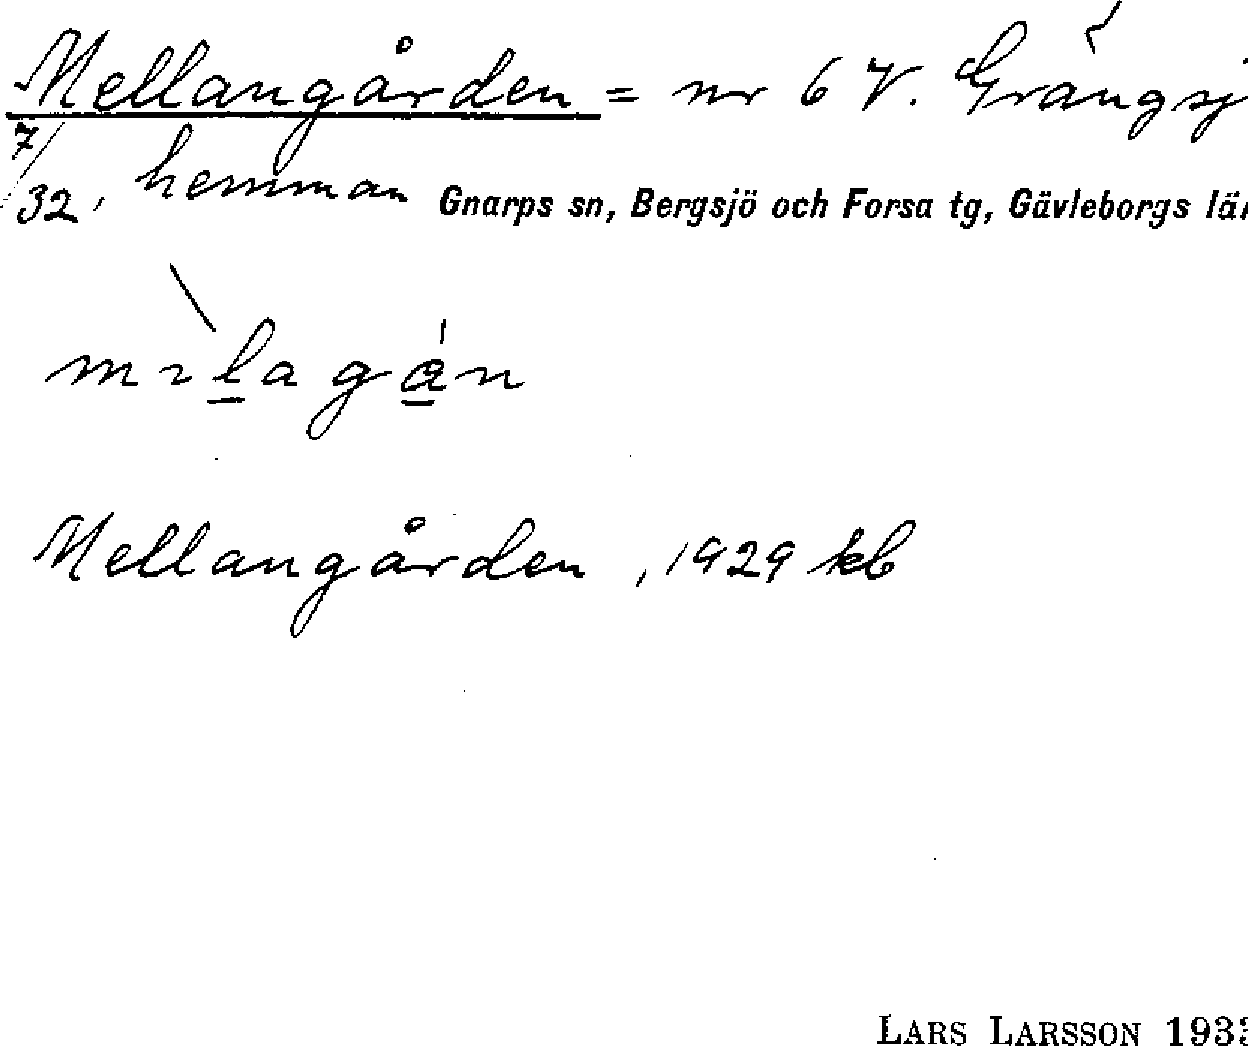 Mellangården = nr 6 V. Grängsj
7/32, hemman Gnarps sn, Bergsjö och Forsa tg, Gävleborgs lä
Mellangården, 1929 kb
LARS LARSSON 1933